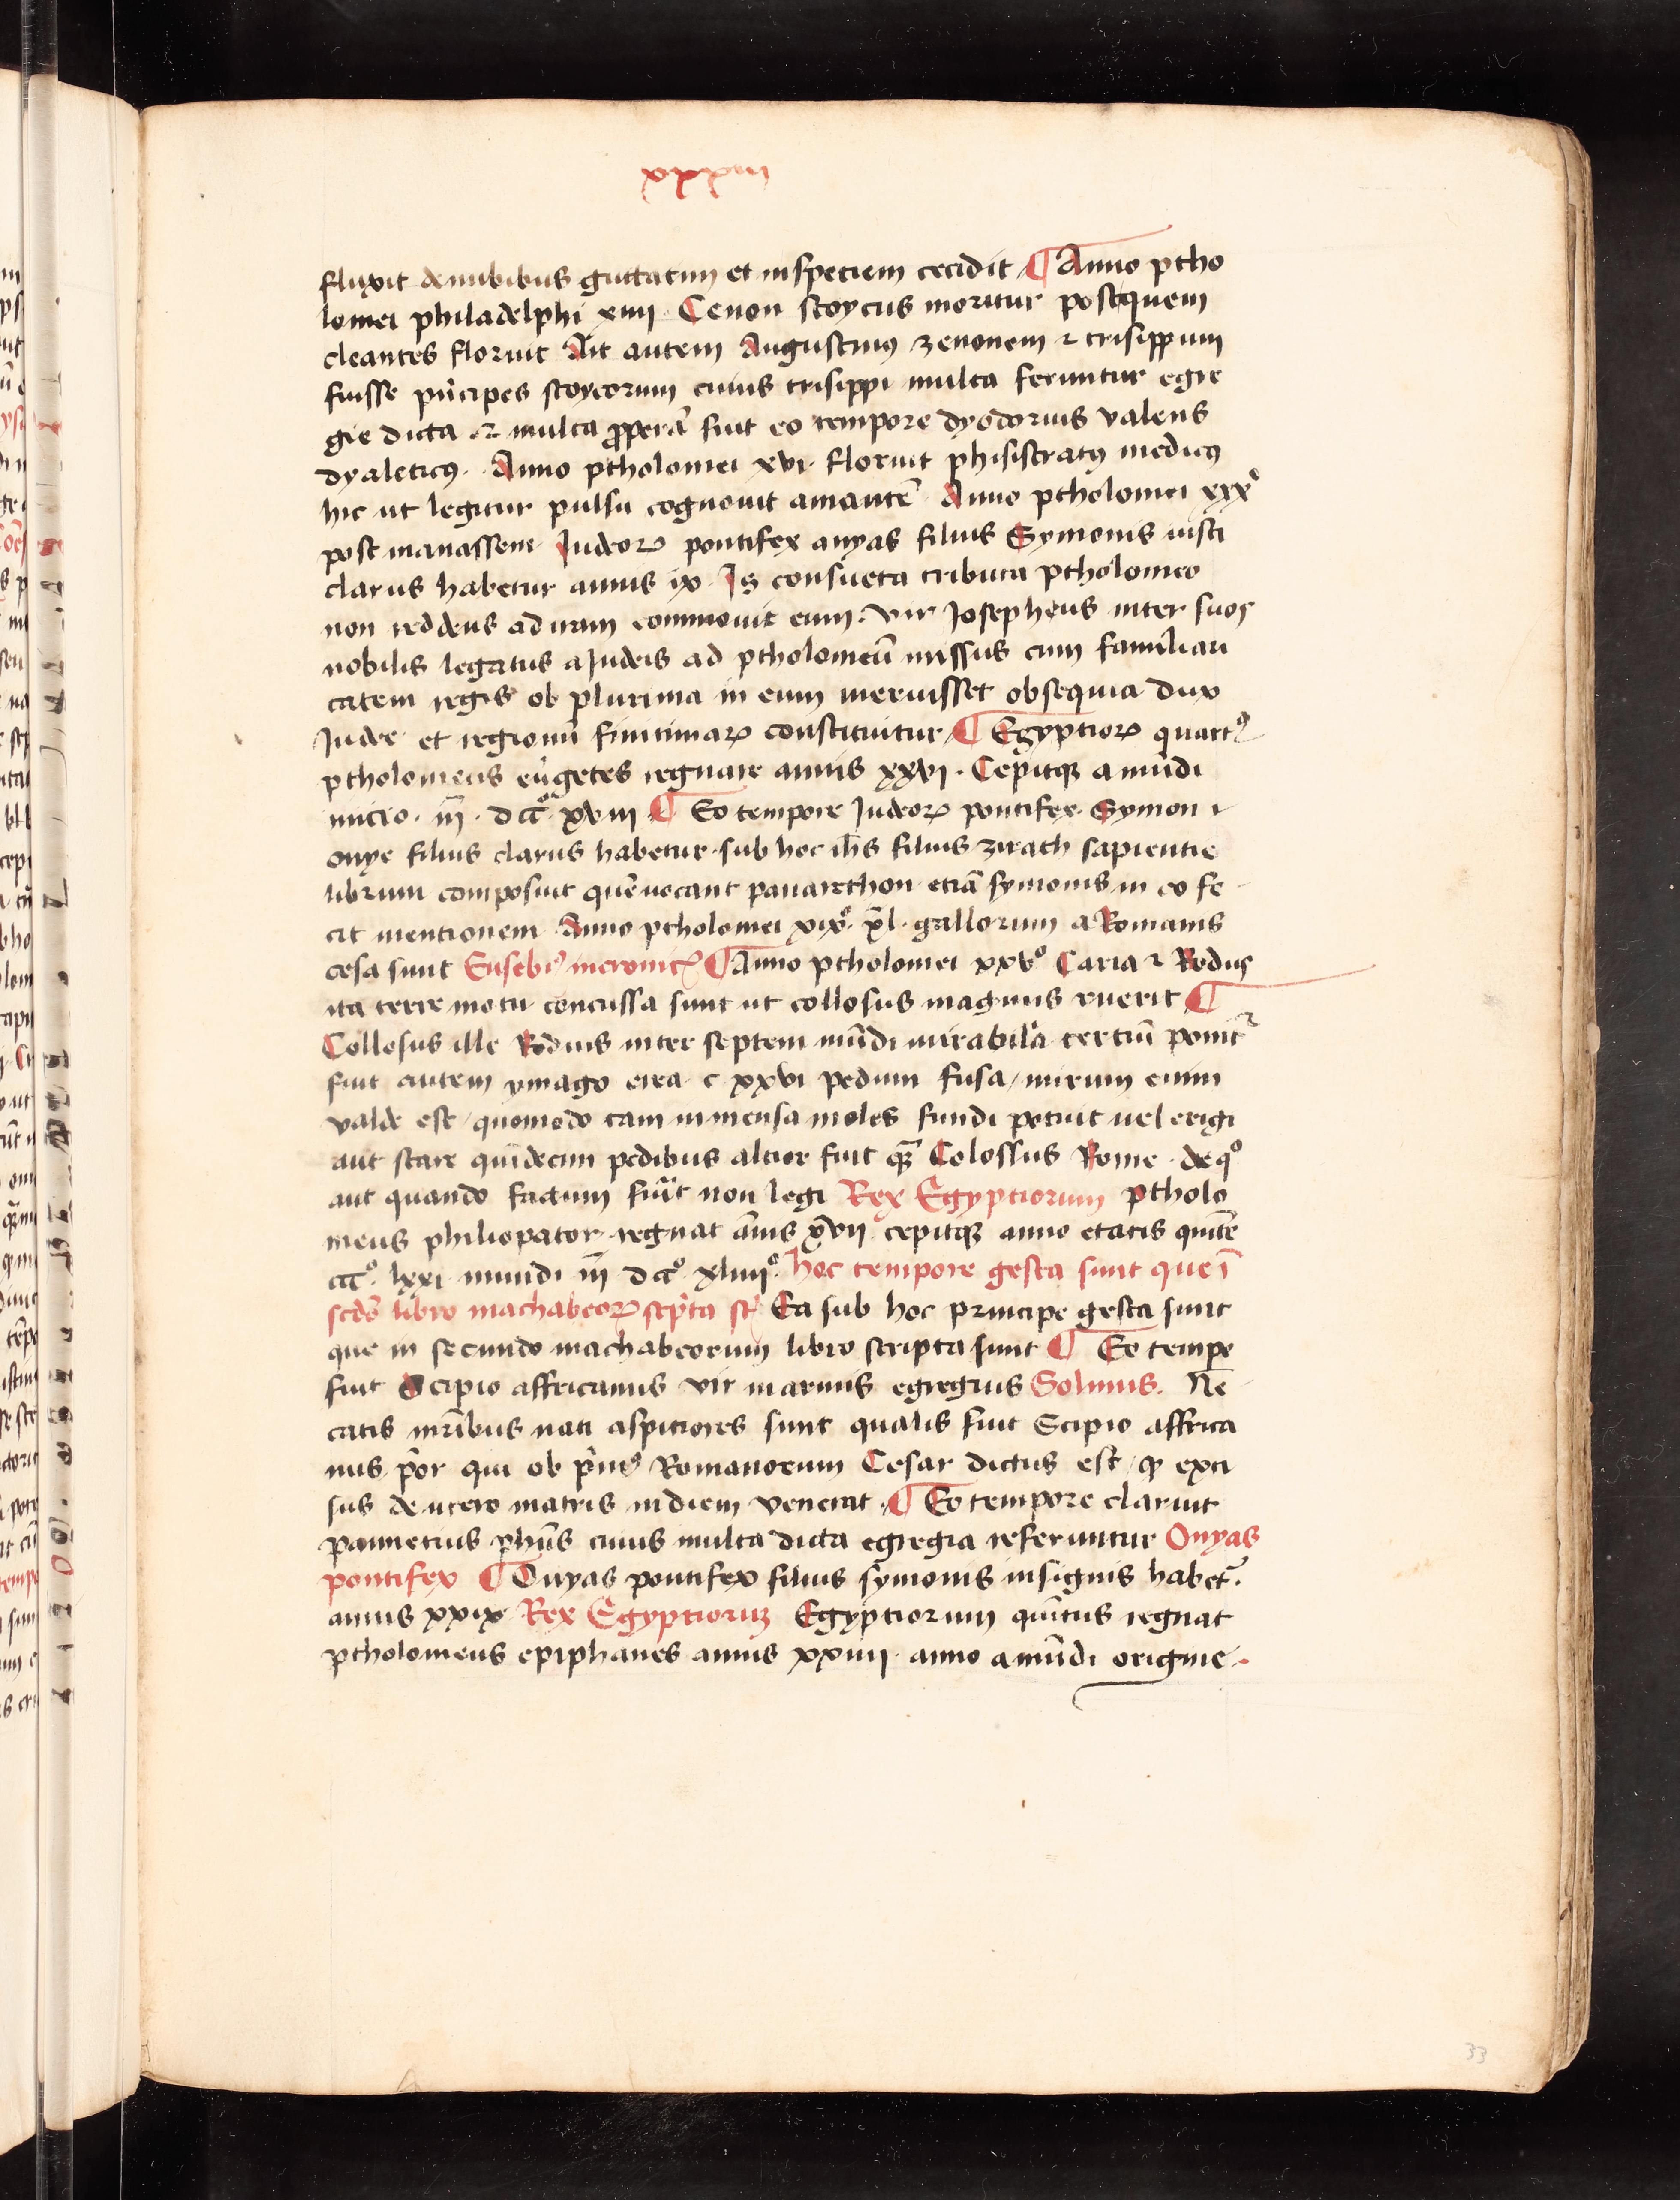 xxxiii
fluxit de nubibus guttatim et in speciem cecidit ¶ Anno ptho
lomei philadelphi xiiii · Cenon stoycus moritur post quem
cleantes floruit Ait autem Augustinꝰ zenonem ⁊ crisippum
fuisse pͥncipes stoycorum cuius crisippi multa feruntur egre
gie dicta ⁊ multa ꝓpera᷑ fuit eo tempore dyodorus valens
dyaleticꝰ · Anno ptholomei xvi · floruit phisistratꝰ medicꝰ
hic ut legitur pulsu cognouit amantē Anno ptholomei xxxͦ
post manassem Iudeoꝝ pontifex onyas filius Symonis iusti
clarus habetur annis ix · Is consueta tributa ptholomeo
non reddens ad iram commouit eum · vir Iosephus inter suos
nobilis legatus a Iudeis ad ptholomeū missus cum familiari
tatem regis ob plurima in eum meruisset obsequia dux
Iudee et regionū finitimaꝝ constituitur ¶ Egyptioꝝ quartꝰ
ptholomeus eu᷑getes regnare annis xxvi · Cepitqꝫ a mūdi
inicio · iii̅ · dccͦ xviii ¶ Eo tempore Iudeoꝝ pontifex Symon
onye filius clarus habetur sub hoc ih̄s filius zirach sapientie
librum composuit quē uocant panarethon etiā symonis in eo fe
cit mentionem Anno ptholomei xixͦ · xl̄ · gallorum a Romanis
cesa sunt Eusebiꝰ in cronicꝭ ¶ Anno ptholomei xxvͦ Caria ⁊ Rodus
ita terre motu concussa sunt ut collosus magnus ruerit ¶
Collosus ille Rodius inter septem mūdi mirabilia tertiū ponit᷑
fuit autem ymago erea c xxvi pedum fusa / mirum enim
valde est / quomodo tam inmensa moles fundi potuit uel erigi
aut stare quīdecim pedibus altior fuit qͣꝫ Colossus Rome · de qͦ
aut quando factum fu᷑it non legi Rex Egyptiorum ptholo
meus philiopator regnat ānis xvii cepitqꝫ anno etatis quīte
ccͨͦ · lxxi mundi iii̅ dccͦ xliiiiͦ · hoc tempore gesta sunt que ī
scd̄o libro machabeoꝝ scͥpta st̄ Ea sub hoc principe gesta sunt
que in secundo machabeorum libro scripta sunt ¶ Eo tempe
fuit Scipio affricanus vir in armis egregius Solinus · Ne
catis mr̄ibus nati aspitiores sunt qualis fuit Scipio affrica
nus pͥor qui ob pͥmꝰ Romanorum Cesar dictus est / qꝫ exci
sus de utero matris in diem venerat · ¶ Eo tempore claruit
pannetius ph̄us cuius multa dicta egregia referuntur Onyas
pontifex ¶ Onyas pontifex filius symonis insignis habet᷑ ·
annis xxix Rex Egyptioruꝫ Egyptiorum quītus regnat
ptholomeus epiphanes annis xxiiii · anno a mūdi origine
33